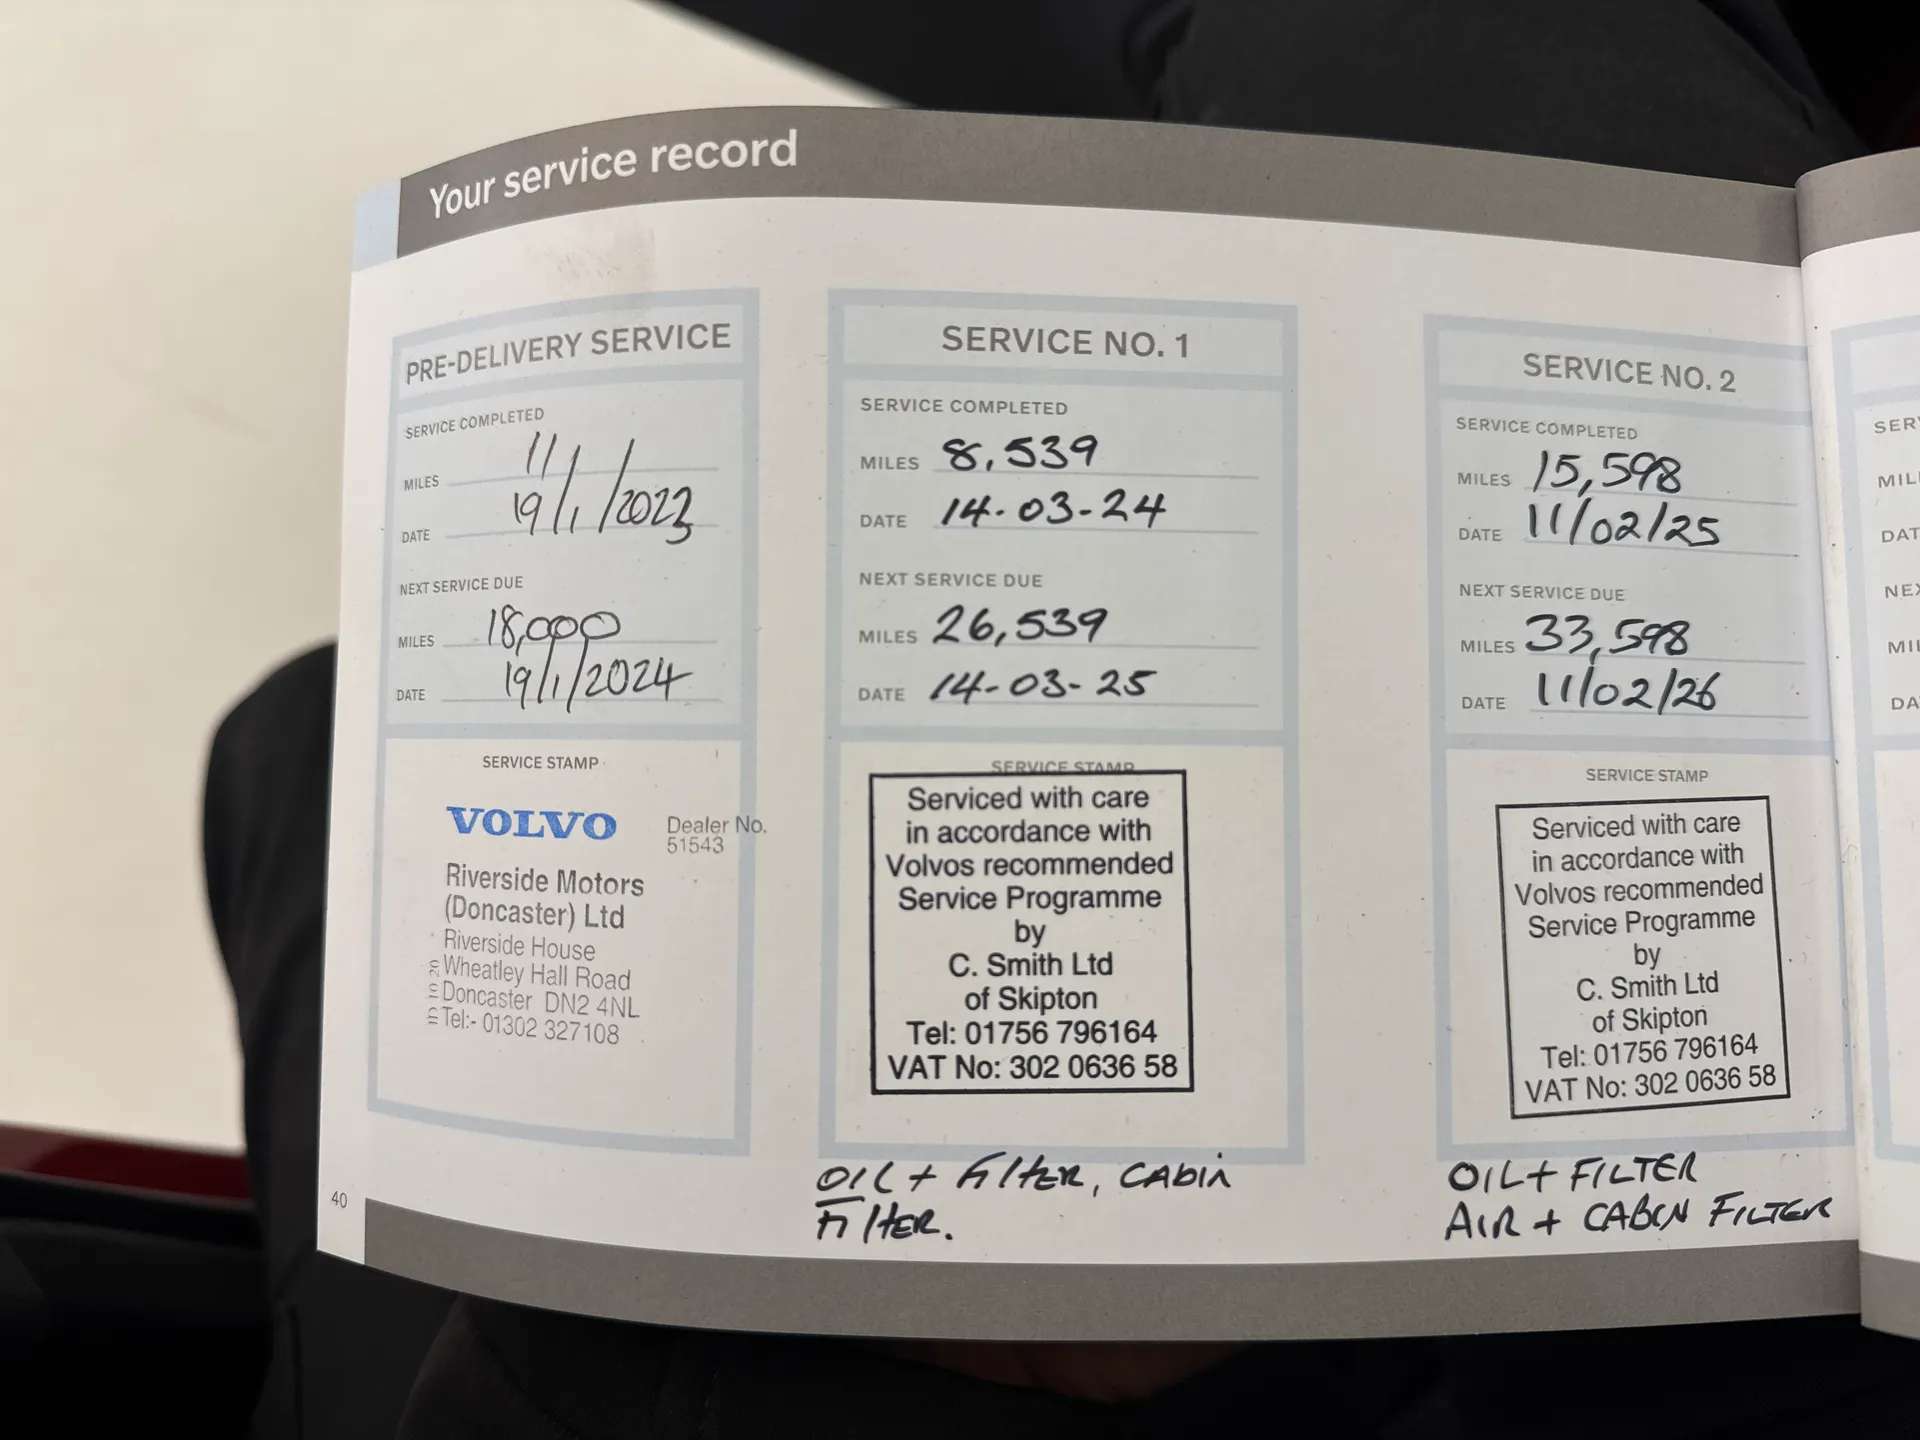 Your service record
PRE-DELIVERY SERVICE
SERVICE COMPLETED
MILES 11
DATE 19/1/2023
NEXT SERVICE DUE
MILES 18,000
DATE 19/1/2024
SERVICE STAMP
VOLVO
Dealer No.
51543
Riverside Motors
(Doncaster) Ltd
Riverside House
Wheatley Hall Road
Doncaster DN2 4NL
Tel:- 01302 327108
SERVICE NO. 1
SERVICE COMPLETED
MILES 8,539
DATE 14-03-24
NEXT SERVICE DUE
MILES 26,539
DATE 14-03-25
SERVICE STAMP
Serviced with care
in accordance with
Volvos recommended
Service Programme
by
C. Smith Ltd
of Skipton
Tel: 01756 796164
VAT No: 302 0636 58
OIL + FIlTER, CABIN
FIlTER.
SERVICE NO. 2
SERVICE COMPLETED
MILES 15,598
DATE 11/02/25
NEXT SERVICE DUE
MILES 33,598
DATE 11/02/26
SERVICE STAMP
Serviced with care
in accordance with
Volvos recommended
Service Programme
by
C. Smith Ltd
of Skipton
Tel: 01756 796164
VAT No: 302 0636 58
OIL + FILTER
AIR + CABIN FILTER
40